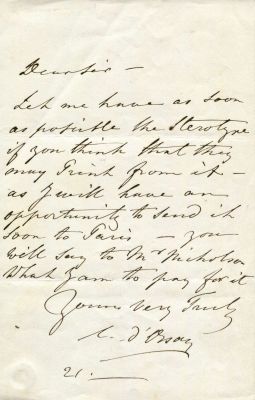 Dear Sir —
Let me have as soon
as posible the Sterotype
if you think that they
may Print from it —
as I will have an
opportunity to send it
soon to Paris — you
will say to Mr Nicholson
What I am to pay for it
Yours very Truly
C. d'Orsay
21. —